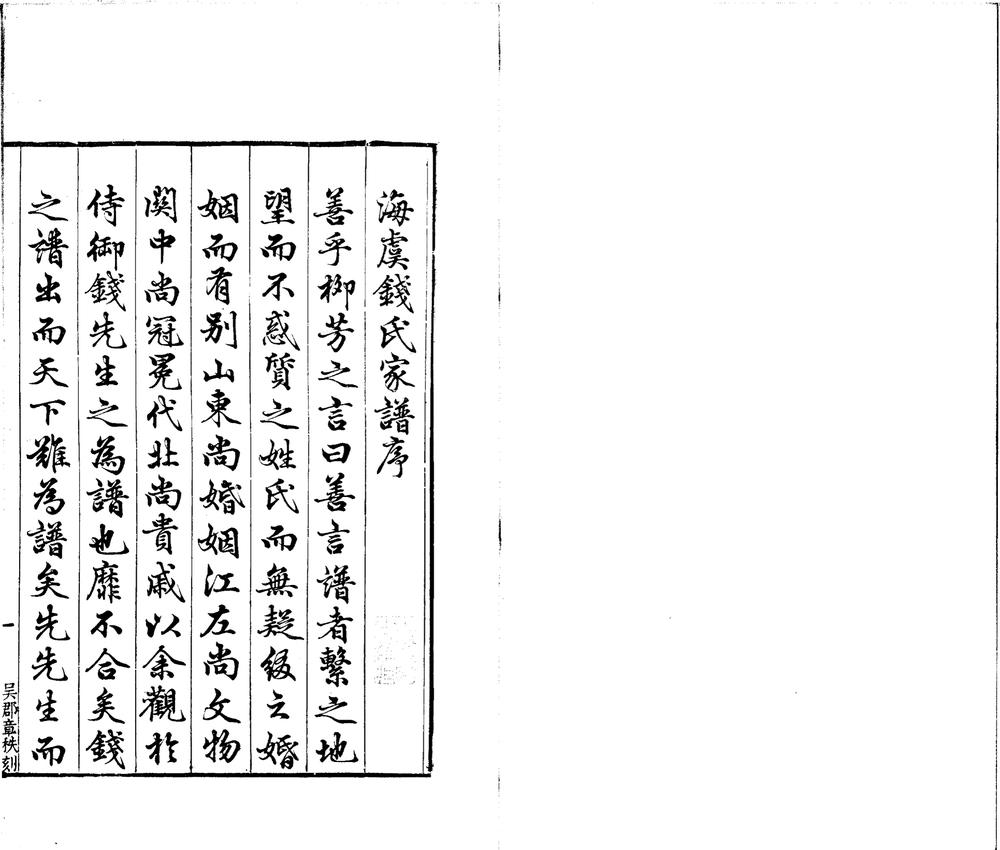 海虞錢氏家譜序
善乎柳芳之言曰善言譜者繫之地
望而不惑質之姓氏而無疑綴之婚
姻而有别山東尚婚姻江左尚文物
関中尚冠冕代北尚貴戚以余觀於
侍御錢先生之為譜也靡不合矣錢
之譜出而天下難為譜矣先先生而
一
吴郡章袟刻